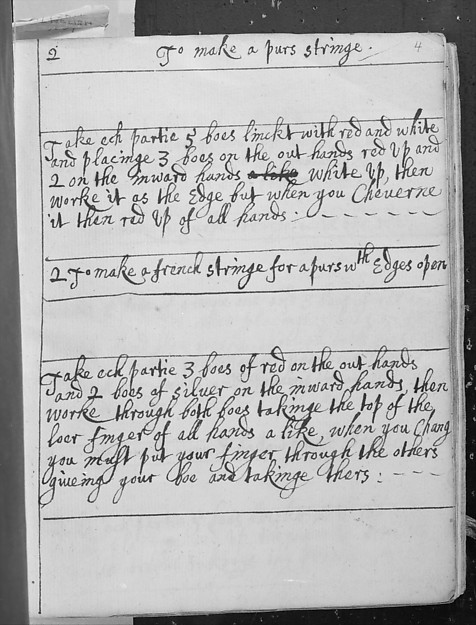 2 To make a purs stringe . 4
Take ech partie 5 boes linckt with red and white
and placinge 3 boes on the out hands red Up and
2 on the inward hands a like white Up, then
worke it as the Edge but when you Cheverne
it then red Up of all hands : - - - - - -
2 To make a french stringe for a purs wth Edges open
Take ech partie 3 boes of red on the out hands
and 2 boes of silver on the inward hands, then
worke through both boes takinge the top of the
loer finger of all hands a like, when you Chang
you must put your finger through the others
giveing your boe and takinge thers : - - -